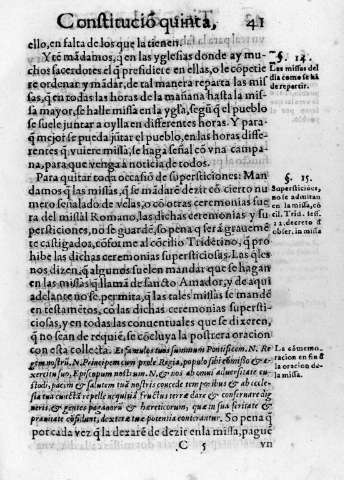 Constitució quinta, 41
ello, en falta de los que la tienen.
Y té mádamos, q̃ en las yglesias donde ay mu-
chos sacerdotes el q̃ presidiere en ellas, o le cópetie
re ordenar y mádar, de tal manera reparta las mis
sas, q̃ en todas las horas de la mañana hasta la mis-
sa mayor, se halle missa en la ygla, segú q̃ el pueblo
se suele juntar a oylla en differentes horas. Y para
q̃ mejor se pueda jútar el pueblo, en las horas diffe-
rentes q̃ vuiere missa, se haga señal có vna campa-
na, para que venga a noticia de todos.
Para quitar toda occasió de supersticiones: Man-
damos q̃ las missas, q̃ se mádaré dezir có cierto nu
mero señalado de velas, o có otras ceremonias sue
ra del missal Romano, las dichas ceremonias y su-
persticiones, no se guardé, so pena q̃ será grauemé
te castigados, cóforme al cócilio Tridétino, q̃ pro
hibe las dichas ceremonias supersticiosas. Las q̃les
nos dizen, q̃ algunos suelen mandar que se hagan
en las missas q̃ llamá de sancto Amador, y de aqui
adelante no se permita, q̃ las tales missas se mandé
en testamétos, có las dichas ceremonias supersti-
ciosas, y en todas las conuentuales que se dixeren,
q̃ no sean de requié, se cócluya la postrera oracion
con esta collecta. Et famulos tuos summum Pontificem. N. Re
gem nostrú. N. Principem cum prole Regia, populo sibi cómisso & ex-
ercitu suo, Episcopum nostrum. N. & nos ab omni aduersitate cu-
stodi, pacem & salutem tuá nostris concede temporibus & ab eccle-
sia tua cunctá repelle nequitiá fructus terræ dare & conseruare dig
neris, & gentes paganorú & hæreticorum, quæ in sua feritate &
prauitate cófidunt, dexteræ tuæ potentia conterantur. So pena q̃
por cada vez q̃ la dexaré de dezir en la missa, pagué
C 5 vn
§. 14.
Las missas del
dia como se há
de repartir.
§. 15.
Supersticiones,
no se admitan
en la missa, có
cil. Trid. sess.
22. decreto d
obser. in missa
La cómemo-
racion en fin d
la oracion de
la missa.